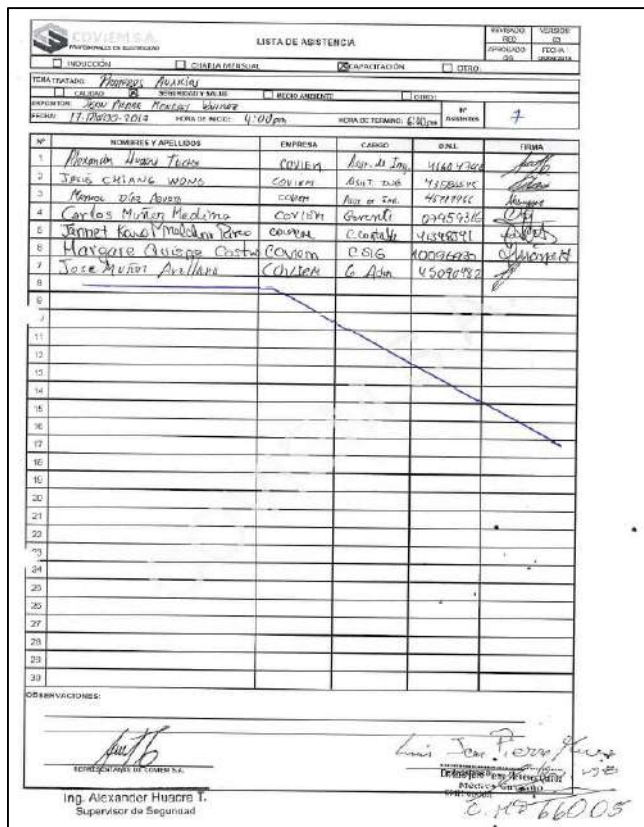 COVIEM S.A.
PROFESIONALES EN ELECTRICIDAD
LISTA DE ASISTENCIA
REVISADO: RED
VERSION: 03
APROBADO: GG
FECHA:
INDUCCIÓN
CHARLA MENSUAL
CAPACITACIÓN
OTRO:
TEMA TRATADO: Primeros Auxilios
CALIDAD
SEGURIDAD Y SALUD
MEDIO AMBIENTE
OTRO:
EXPOSITOR: Jean Pierre
FECHA: 17-Marzo-2017 HORA DE INICIO: 4:00pm HORA DE TERMINO: 6:00pm Nº ASISTENTES 7
Nº NOMBRES Y APELLIDOS EMPRESA CARGO D.N.I. FIRMA
1 Alexander COVIEM Asist. de Ing.
2 Jesús CHIANG WONG COVIEM Asist. Ing
3 Manuel Díaz COVIEM Asist de Ing.
4 Carlos Muñoz Medina COVIEM Gerente 07959316
5 Jannet Karol COVIEM C. Contable
6 Margare Quispe Castro Coviem CSIG
7 Jose Muñoz Arellano COVIEM G Adm. 45090982
8
9
11
12
13
14
15
16
17
18
19
20
21
22
23
24
25
26
27
28
29
30
OBSERVACIONES:
REPRESENTANTE DE COVIEM S.A.
Ing. Alexander Huacre T.
Supervisor de Seguridad
Luis Jean Pierre
Médico Cirujano
C.MP 66005